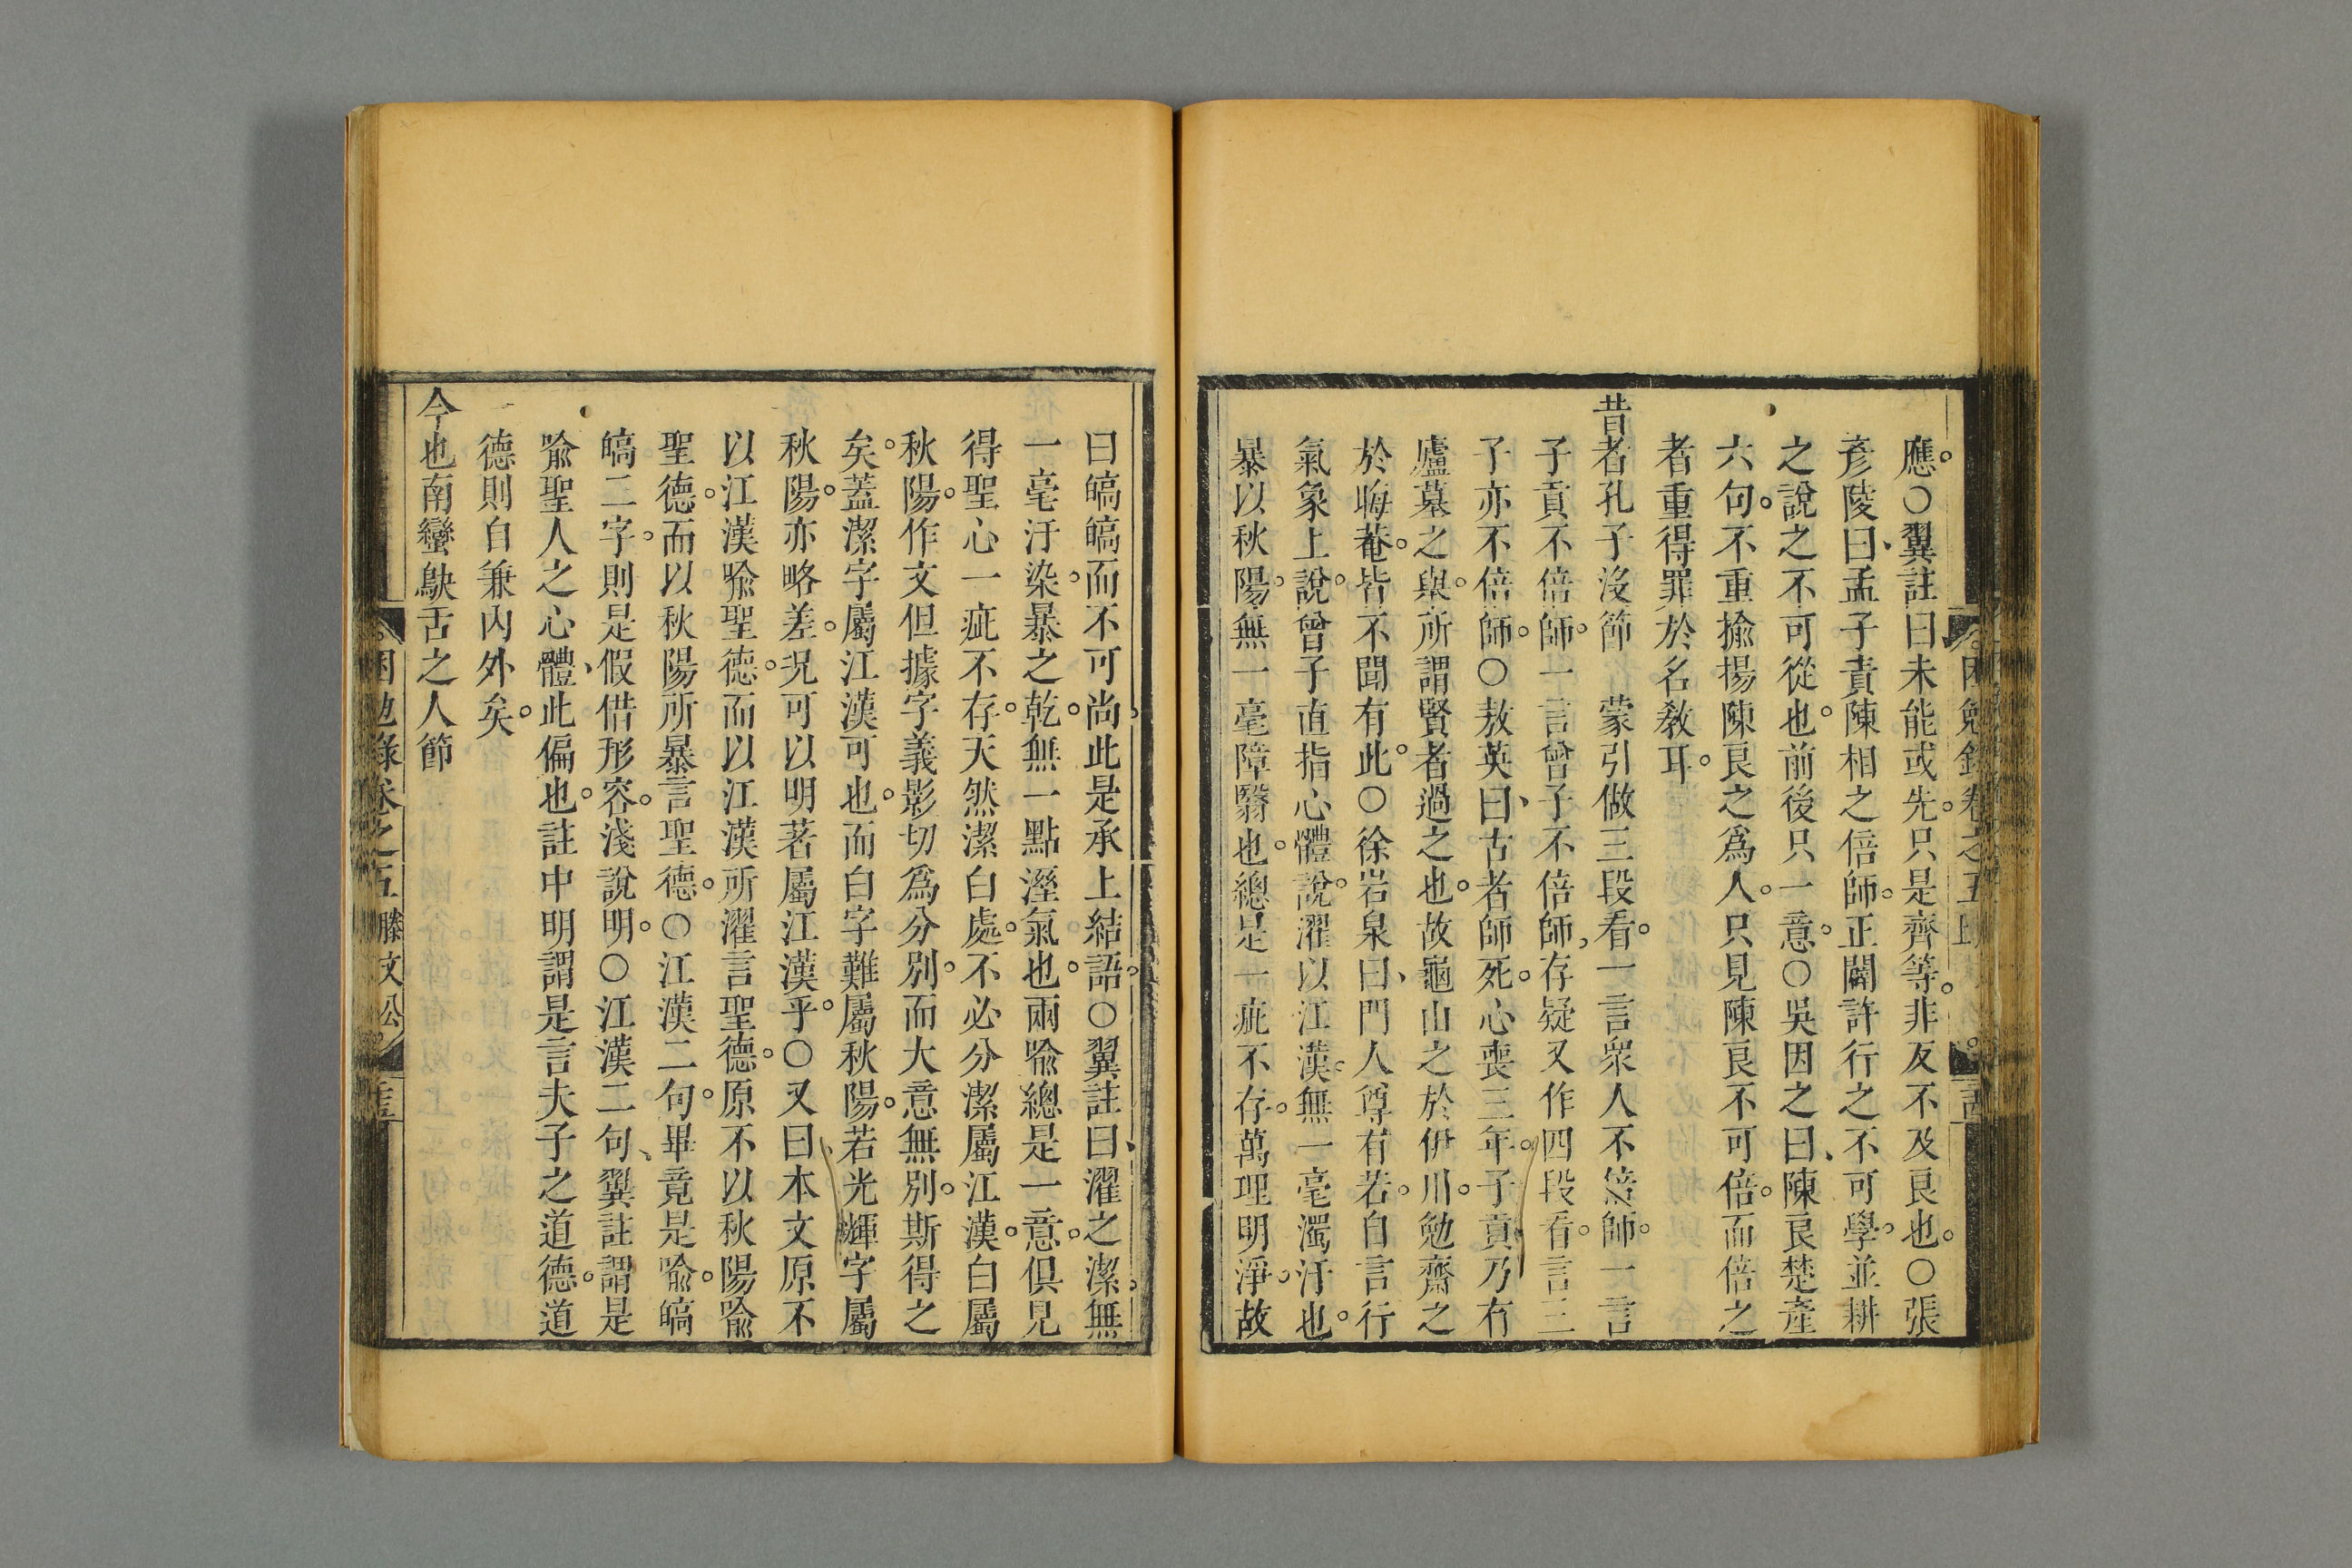 應○翼註曰未能或先只是齊等非反不及良也○張
彥陵曰孟子責陳相之倍師正闢許行之不可學並耕
之說之不可從也前後只一意○吳因之曰陳良楚產
六句不重揄揚陳良之為人只見陳良不可倍而倍之
者重得罪於名教耳
昔者孔子沒節　蒙引做三段看一言眾人不倍師一言
子貢不倍師一言曾子不倍師存疑又作四段看言三
子亦不倍師○敖英曰古者師死心喪三年子貢乃有
廬墓之舉所謂賢者過之也故龜山之於伊川勉齋之
於晦菴皆不聞有此○徐岩泉曰門人尊有若自言行
氣象上說曾子直指心體說濯以江漢無一毫濁汙也
暴以秋陽無一毫障翳也總是一疵不存萬理明淨故
曰皜皜而不可尚此是承上結語○翼註曰濯之潔無
一毫汙染暴之乾無一點溼氣也兩喩總是一意俱見
得聖心一疵不存天然潔白處不必分潔屬江漢白屬
秋陽作文但據字義影切為分別而大意無別斯得之
矣蓋潔字屬江漢可也而白字難屬秋陽若光輝字屬
秋陽亦略差况可以明著屬江漢乎○又曰本文原不
以江漢喩聖德而以江漢所濯言聖德原不以秋陽喩
聖德而以秋陽所暴言聖德○江漢二句畢竟是喩皜
皜二字則是假借形容淺說明○江漢二句翼註謂是
喩聖人之心體此偏也註中明謂是言夫子之道德道
德則自兼內外矣
今也南蠻鴃舌之人節
困勉錄卷之五　滕文公